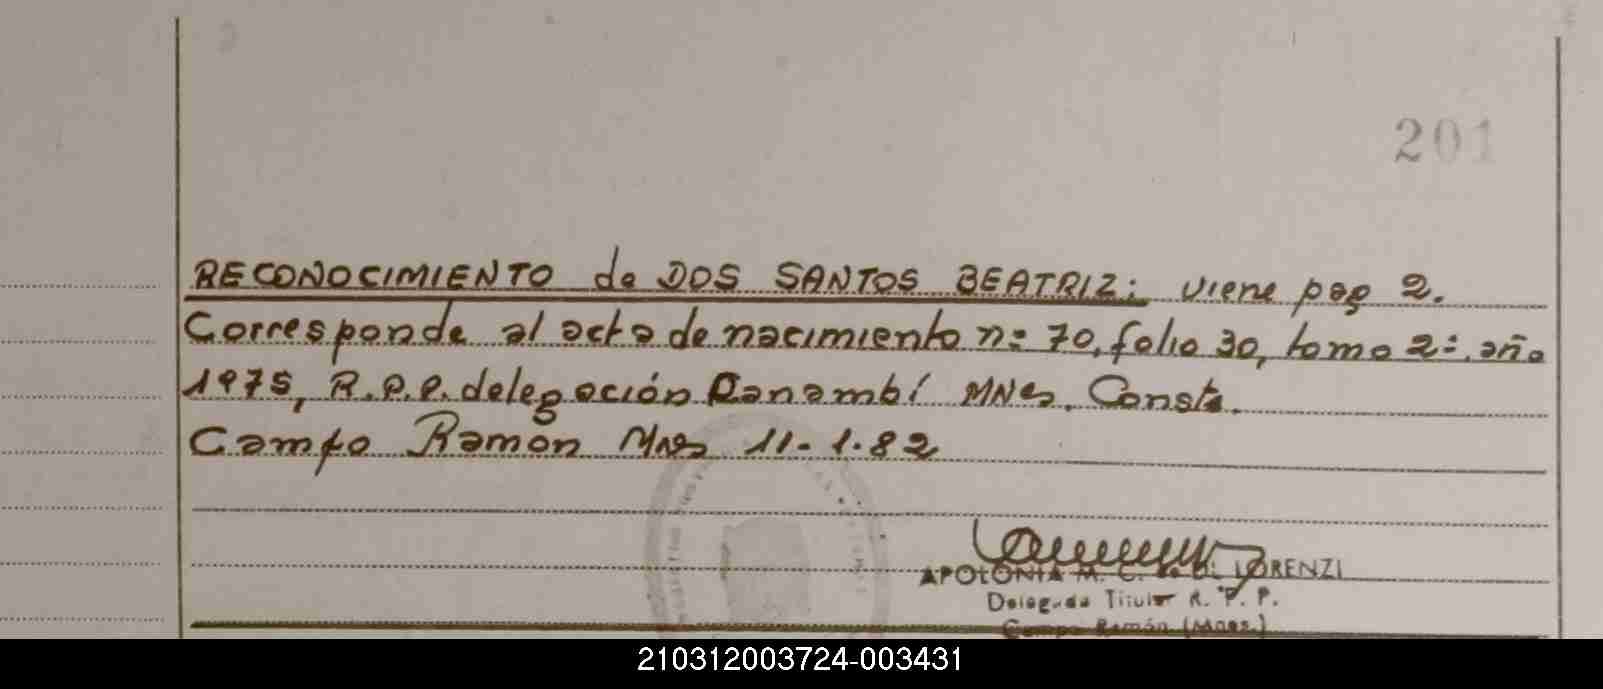 201
RECONOCIMIENTO de DOS SANTOS BEATRIZ: viene pag 2.
Corresponde al acta de nacimiento nº 70, folio 30, tomo 2º, año
1975, R.P.P. delegación Panambí MNes. Conste.
Campo Ramón Mnes 11-1-82
APOLONIA M. C. de DI LORENZI
Delegada Titular R. P. P.
Campo Ramón (Mnes.)
210312003724-003431